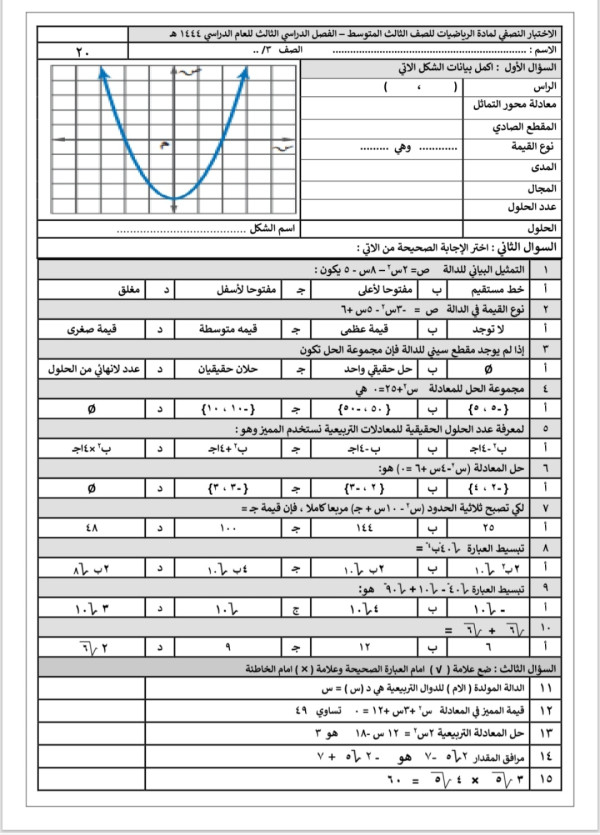 الاختبار النصفي لمادة الرياضيات للصف الثالث المتوسط – الفصل الدراسي الثالث للعام الدراسي ١٤٤٤ هـ
الاسم : ........................................................ الصف ٣/ .. ٢٠
السؤال الأول : اكمل بيانات الشكل الاتي
الراس ( ، )
معادلة محور التماثل
المقطع الصادي
نوع القيمة ............ وهي .........
المدى
المجال
عدد الحلول
الحلول
ص
س
م
اسم الشكل ......................................
السوال الثاني : اختر الإجابة الصحيحة من الاتي :
١ التمثيل البياني للدالة ص= ٢س٢ – ٨س - ٥ يكون :
أ خط مستقيم ب مفتوحا لأعلى جـ مفتوحا لأسفل د مغلق
٢ نوع القيمة في الدالة ص = -٣س٢ - ٥س +٦
أ لا توجد ب قيمة عظمى جـ قيمه متوسطة د قيمة صغرى
٣ إذا لم يوجد مقطع سيني للدالة فإن مجموعة الحل تكون
أ Ø ب حل حقيقي واحد جـ حلان حقيقيان د عدد لانهائي من الحلول
٤ مجموعة الحل للمعادلة س٢+٢٥=٠ هي
أ {-٥ ، ٥} ب {٥٠ ، -٥٠} جـ {-١٠ ، ١٠} د Ø
٥ لمعرفة عدد الحلول الحقيقية للمعادلات التربيعية نستخدم المميز وهو :
أ ب٢ -٤أجـ ب ب-٤أجـ جـ ب٢ +٤أجـ د ب٢ ×٤أجـ
٦ حل المعادلة (س٢-٤س +٦ =٠) هو:
أ {-٢ ، ٤} ب {٢ ، -٣} جـ {-٣ ، ٣} د Ø
٧ لكي تصبح ثلاثية الحدود (س٢ - ١٠س + جـ) مربعا كاملا ، فإن قيمة جـ =
أ ٢٥ ب ١٤٤ جـ ١٠٠ د ٤٨
٨ تبسيط العبارة =
أ ٢ب٢ √١٠ ب ٢ب √١٠ جـ ٤ب √١٠ د ٢ب √٨
٩ تبسيط العبارة √٤٠ - √١٠ + √٩٠ هو:
أ - √١٠ ب ٤√١٠ ج √١٠ د ٣ √١٠
١٠ √٦ + √٦ =
أ ٦ ب ١٢ جـ ٩ د ٢ √٦
السؤال الثالث : ضع علامة ( √ ) امام العبارة الصحيحة وعلامة ( × ) امام الخاطئة
١١ الدالة المولدة ( الام ) للدوال التربيعية هي د (س ) = س
١٢ قيمة المميز في المعادلة س٢ +٣س +١٢ = ٠ تساوي ٤٩
١٣ حل المعادلة التربيعية ٢س٢ = ١٢ س -١٨ هو ٣
١٤ مرافق المقدار ٢√٥ -٧ هو - ٢ √٥ + ٧
١٥ ٣ √٥ × ٤ √٥ = ٦٠